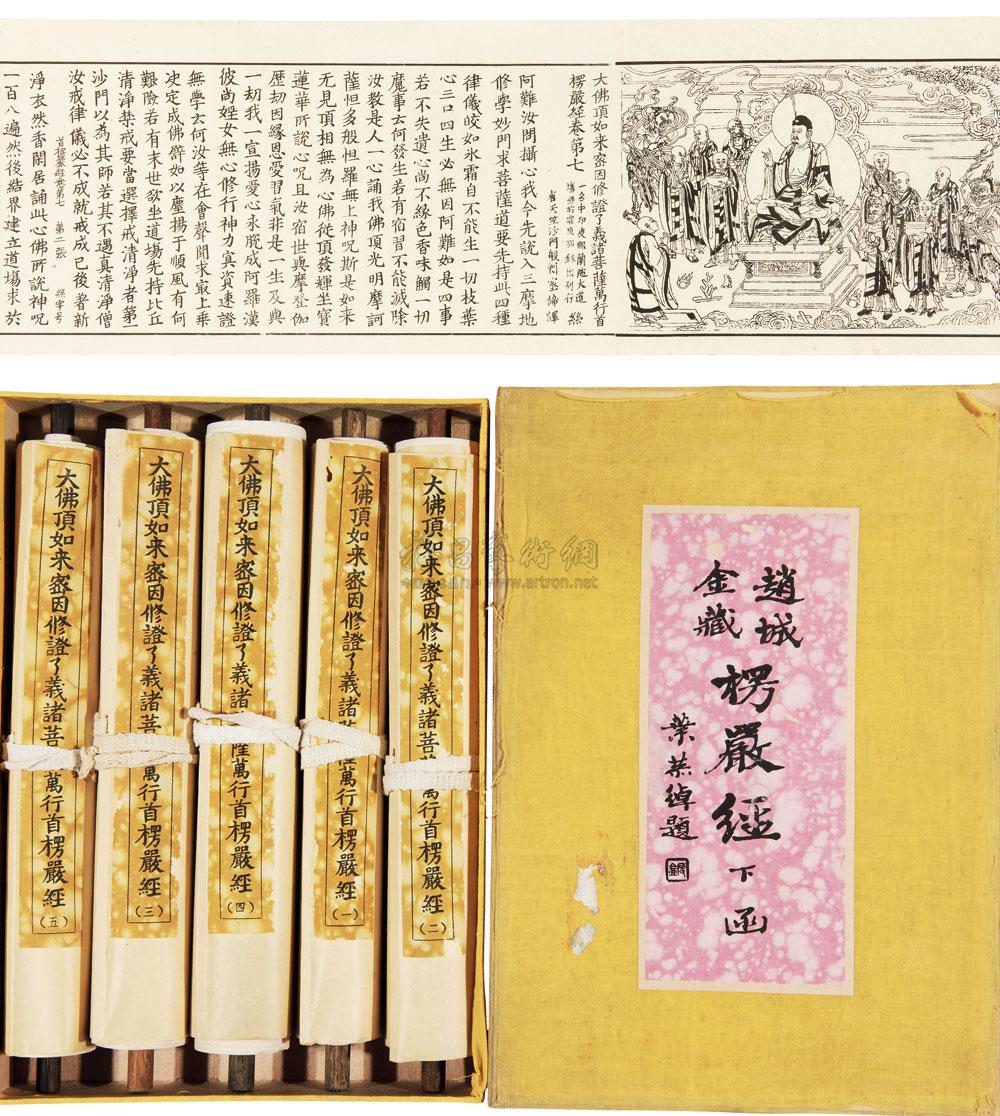 大佛頂如来密因修證了義諸菩薩萬行首
楞嚴經卷第七
一名中印度那蘭陁大道
場經於灌頂部錄出別行
阿難汝問攝心我今先說入三摩地
修學妙門求菩薩道要先持此四種
律儀皎如氷霜自不能生一切枝葉
心三口四生必無因阿難如是四事
若不失遺心尚不緣色香味觸一切
魔事云何發生若有宿習不能滅除
汝教是人一心誦我佛頂光明摩訶
薩怛多般怛羅無上神呪斯是如來
无見頂相無為心佛從頂發輝坐寶
蓮華所說心呪且汝宿世與摩登伽
歷劫因緣恩愛習氣非是一生及與
一劫我一宣揚愛心永脫成阿羅漢
彼尚婬女無心修行神力冥資速證
無學云何汝等在會聲聞求冣上乘
决定成佛譬如以塵揚于順風有何
艱險若有末世欲坐道場先持比丘
清淨禁戒要當選擇戒清淨者第一
沙門以為其師若其不遇真清淨僧
汝戒律儀必不成就戒成已後著新
首楞嚴經卷第七 第二張
淨衣然香閑居誦此心佛所說神呪
一百八遍然後結界建立道場求於
大佛頂如来密因修證了義諸菩薩萬行首楞嚴經(五)
大佛頂如来密因修證了義諸菩萬行首楞嚴經(三)
大佛頂如来密因修證了義諸薩萬行首楞嚴經(四)
大佛頂如来密因修證了義諸薩萬行首楞嚴經(一)
大佛頂如来密因修證了義諸菩萬行首楞嚴經(二)
趙城
金藏
楞嚴經下函
葉恭綽題
www.artron.net